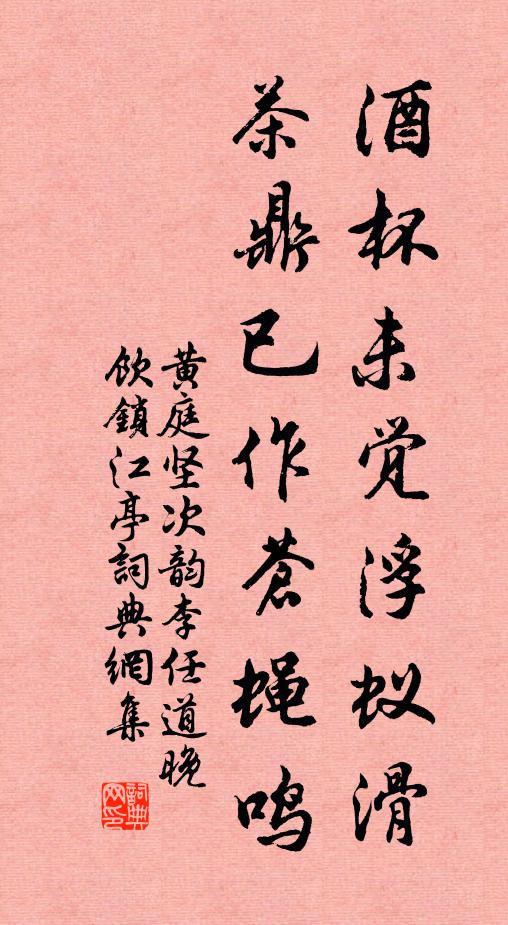 酒杯未觉浮蚁滑
茶鼎已作苍蝇鸣
黄庭坚次韵李任道晚
饮鎖江亭詞典網集
詞典网印